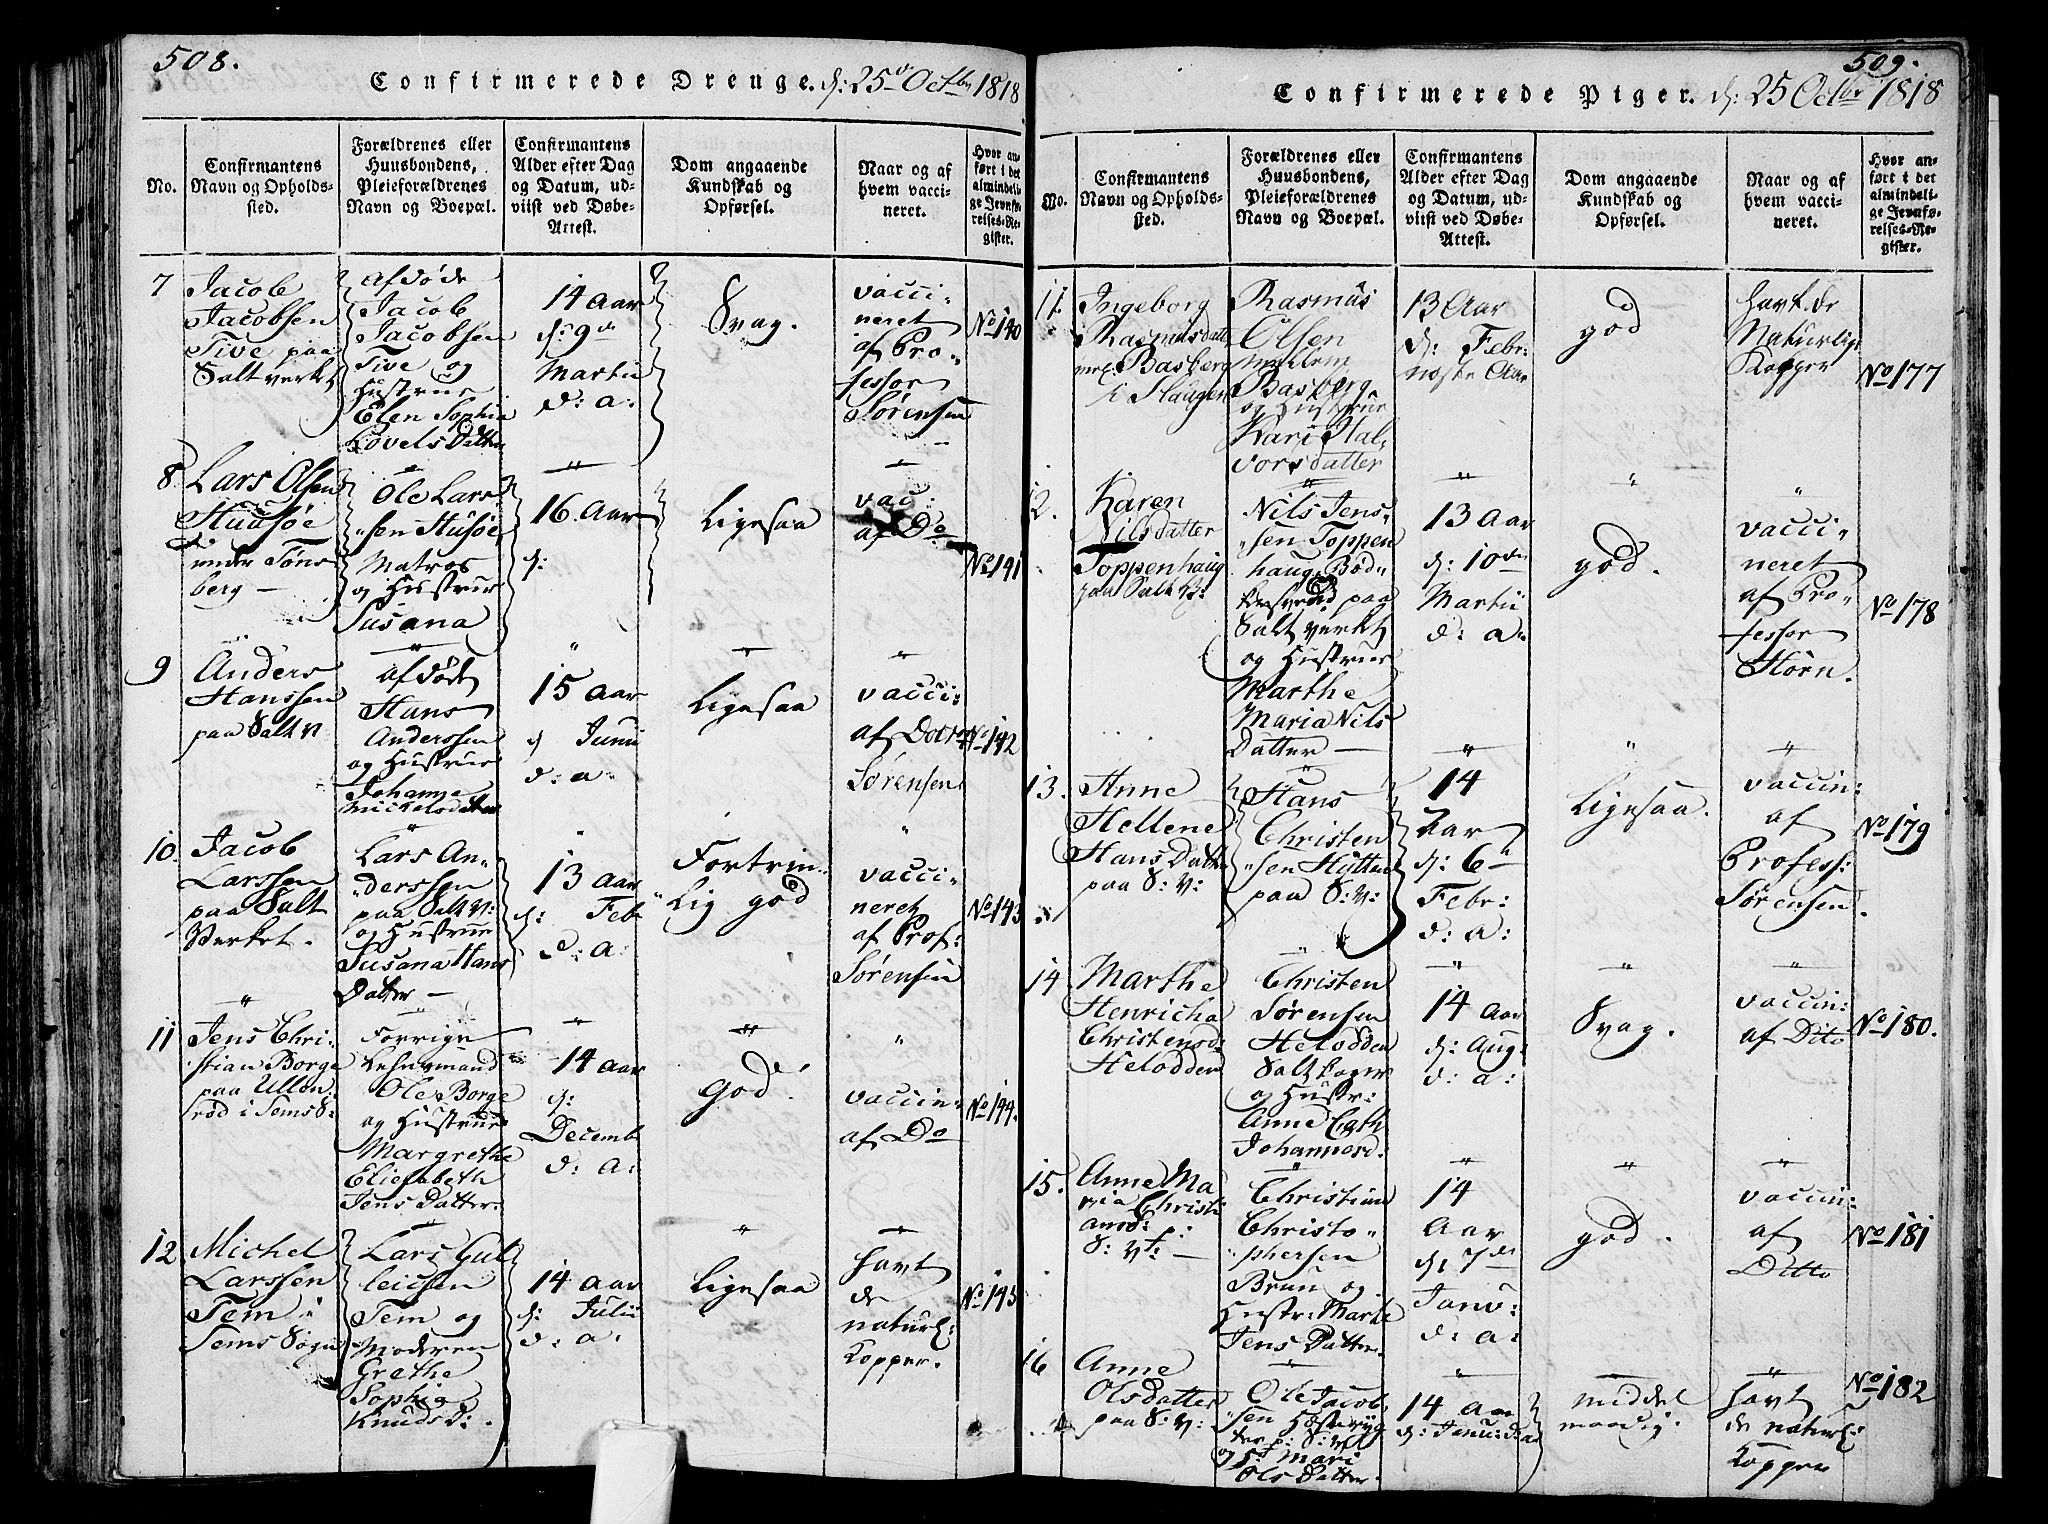 508.
Confirmerede Drenge. d: 25de Octbr 1818
No.
Confirmantens
Navn og Opholds-
sted.
Forældrenes eller
Huusbondens,
Pleieforældrenes
Navn og Boepæl.
Confirmantens
Alder efter Dag
og Datum, ud-
viist ved Døbe-
Attest.
Dom angaaende
Kundskab og
Opførsel.
Naar og af
hvem vacci-
neret.
Hvor an-
ført i det
almindeli-
ge Jevnfø-
relses-Re-
gister.
7
Jacob
Jacobsen
Tive paa
Saltverket
afdøde
Jacob
Jacobsen
Tive og
Hustrue
Elen Sophia
Lovels Datter
14 Aar
d: 9de
Martii
d: a:
Svag.
vacci-
neret
af Pro-
fessor
Sørensen
No 140
8.
Lars Olsen
Huusøe
under Tøns
berg —
Ole Lars
"sen Husøe
Matros
og Hustrue
Susana
16. Aar
d:
Ligesaa
vac:
af Do
No 141
9
Anders
Hanssen
paa Salt V
afdøde
Hans
Anderssen
og Hustrue
Johanne
Mickelsdatter
15 Aar
d Junii
d: a:
Ligesaa
vacci:
af
Sørensen
No 142
10.
Jacob
Larssen
paa Salt
Verket.
Lars An-
"derssen
paa Salt V:
og Hustrue
Susana Hans
Datter —
13 Aar
d: Febr
d: a:
Fortrin-
lig god
vacci-
neret
af Prof:
Sørensen
No 143
11
Jens Chri-
stian Borge
paa Ullen
rød i Sems S:
Forrige
Lehnsmand
Ole Borge
og Hustrue
Margrethe
Eliesabeth
Jens Datter.
14 Aar
d:
Decemb
d: a:
god.
vaccin-
af Do
No 144.
12
Michel
Larssen
Tem i
Sems Sogn
Lars Gul
leichsen
Tem og
Moderen
Grethe
Sophia
Knuds D:
14 Aar
d: Julii
d: a:
Ligesaa
havt
de
naturl:
Kopper.
No 145
509.
Confirmerede Piger. d: 25 Octbr 1818
No.
Confirmantens
Navn og Opholds-
sted.
Forældrenes eller
Huusbondens,
Pleieforældrenes
Navn og Boepæl.
Confirmantens
Alder efter Dag
og Datum, ud-
viist ved Døbe-
Attest.
Dom angaaende
Kundskab og
Opførsel.
Naar og af
hvem vacci-
neret.
Hvor an-
ført i det
almindeli-
ge Jevnfø-
relses-Re-
gister.
11.
Ingeborg
Rasmusdatt
Basberg
i Haugen
Rasmus
Olsen
mellem
Basberg
og Hustrue
Kari Hal-
vorsdatter
13 Aar
d: Febr:
næste Aar
god
havt de
Naturlige
Kopper
No 177
12.
Karen
Nilsdatter
Toppenhaug
paa Salt V:
Nils Jens-
"sen Toppen
haug Bød-
paa
Salt verket
og Hustrue
Marthe
Maria Nils
Datter —
13 Aar
d: 10de
Martii
d: a:
god.
vacci-
neret
af Pro-
fessor
Hørn.
No 178
13.
Anne
Hellene
Hans Datter
paa S: V:
Hans
Christen
"sen Hytten
paa S: V:
14
Aar
d: 6te
Febr:
d: a:
Ligesaa.
vaccin:
af
Profess:
Sørensen.
No 179
14
Marthe
Henricha
Christensd:
Helodden
Christen
Sørensen
Helodden
Salt
og Hustr:
Anne Cath
Johannesd.
14 Aar
d: Aug:
d: a:
Svag.
vaccin:
af Dito
No 180.
15.
Anne Ma
ria Christi
ansd: p:
S: V: —
Christian
Christo-
"phersen
Brun og
Hustr: Marte
Jens Datter.
14
Aar
d: 7de
Janv:
d: a:
god.
vaccin:
af
Ditto
No 181
16
Anne
Olsdatter
paa S: V:
Ole Jacob-
"sen
p: S: V
og H: Mari
Ols Datter.
14 Aar
d: Janu: d: a:
middel
maadig.
havt
de naturl:
Kopper
No 182